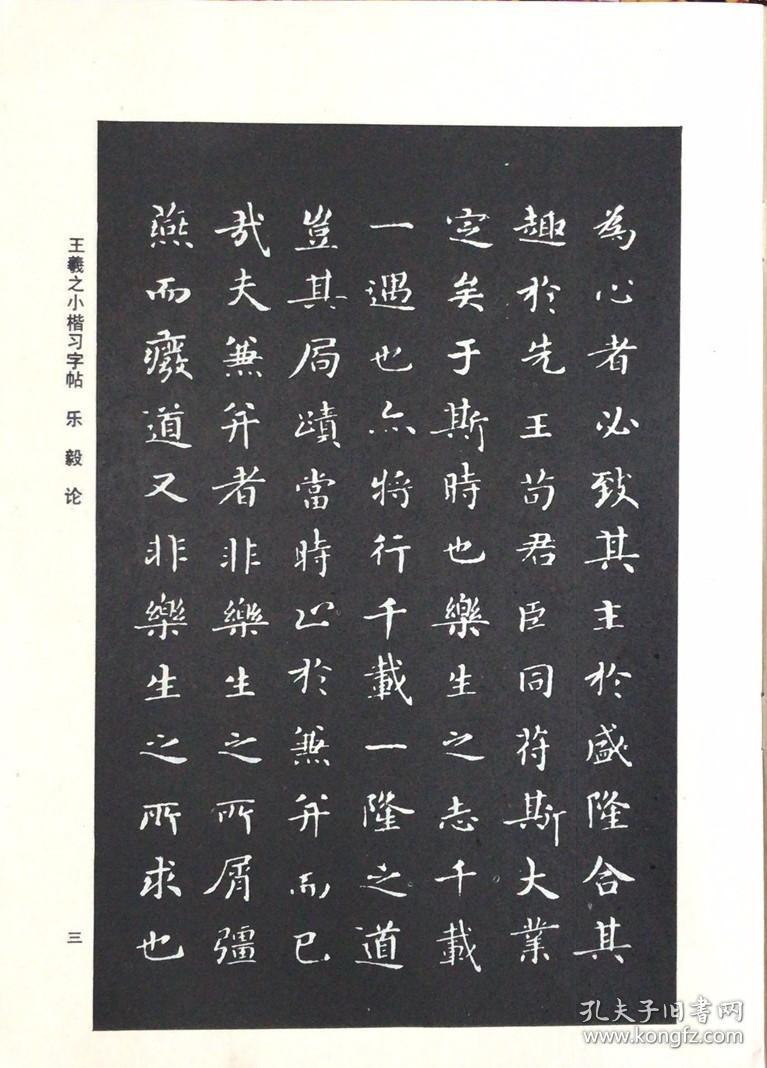 為心者必致其主於盛隆合其
趣於先王苟君臣同符斯大業
定矣于斯時也樂生之志千載
一遇也亦將行千載一隆之道
豈其局蹟當時止於兼并而已
哉夫兼并者非樂生之所屑彊
燕而癈道又非樂生之所求也
王羲之小楷习字帖 乐毅论
三
孔夫子旧书网
www.kongfz.com